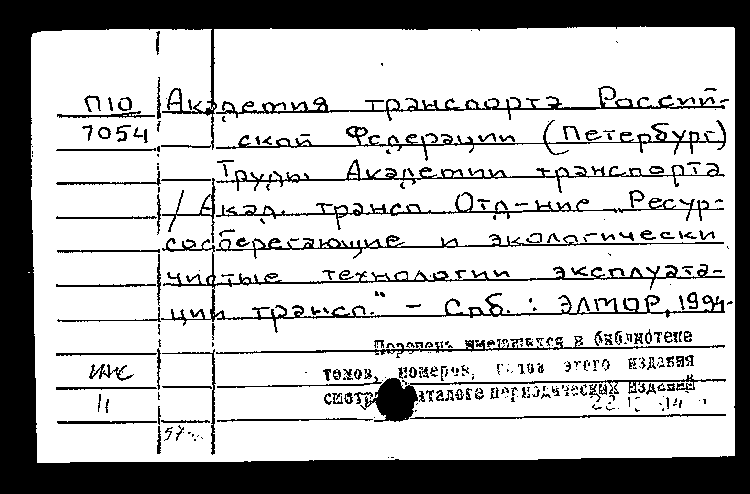 П10 Академия транспорта Россий-
7054 ской Федерации (Петербург)
Труды Академии транспорта
/ Акад. трансп. Отд-ние „Ресур-
сосберегающие и экологически
чистые технологии эксплуата-
ции трансп." – Спб. : ЭЛМОР, 1994-
Перечень имеющихся в библиотеке
томов, номеров, годов этого издания
смотри каталоге периодических изданий
11
57